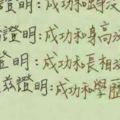 證明：成功和
證明：成功和身高
證明：成功和長相
茲證明：成功和學歷